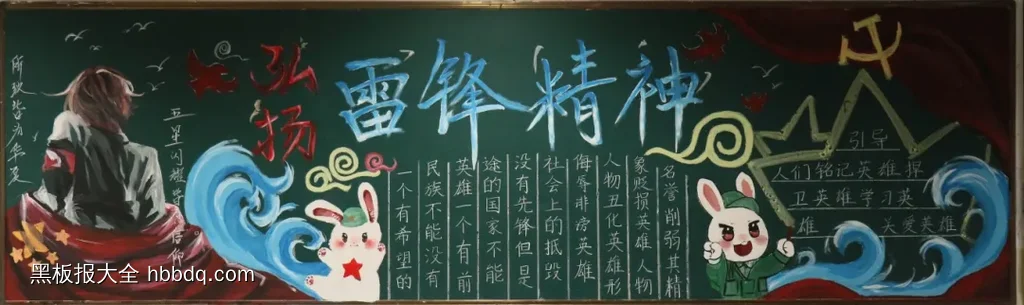 弘扬
雷锋精神
所致皆为华夏
五星闪耀
信仰
一个有希望的
民族不能没有
英雄一个有前
途的国家不能
没有先锋但是
社会上的抵毁
侮辱诽谤英雄
人物丑化英雄形
象贬损英雄人物
名誉削弱其精
引导
人们铭记英雄捍
卫英雄学习英
雄 关爱英雄
黑板报大全 hbbdq.com